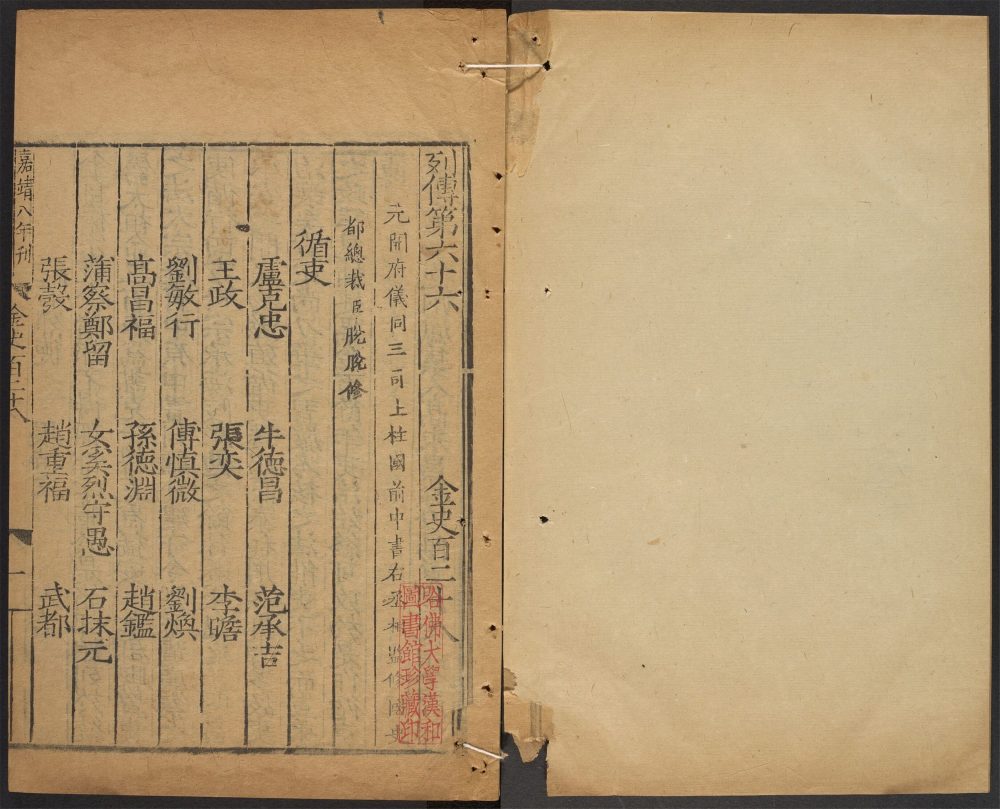 列傳第六十六 金史百二十八
元開府儀同三司上柱國前中書右丞相監修國史
都總裁臣脫脫修
循吏
盧克忠 牛德昌 范承吉
王政 張奕 李瞻
劉敏行 傅慎微 劉煥
高昌福 孫德淵 趙鑑
蒲察鄭留 女奚烈守愚 石抹元
張彀 趙重福 武都
嘉靖八年刊 金史百二十八 一
哈佛大學漢和
圖書館珍藏印